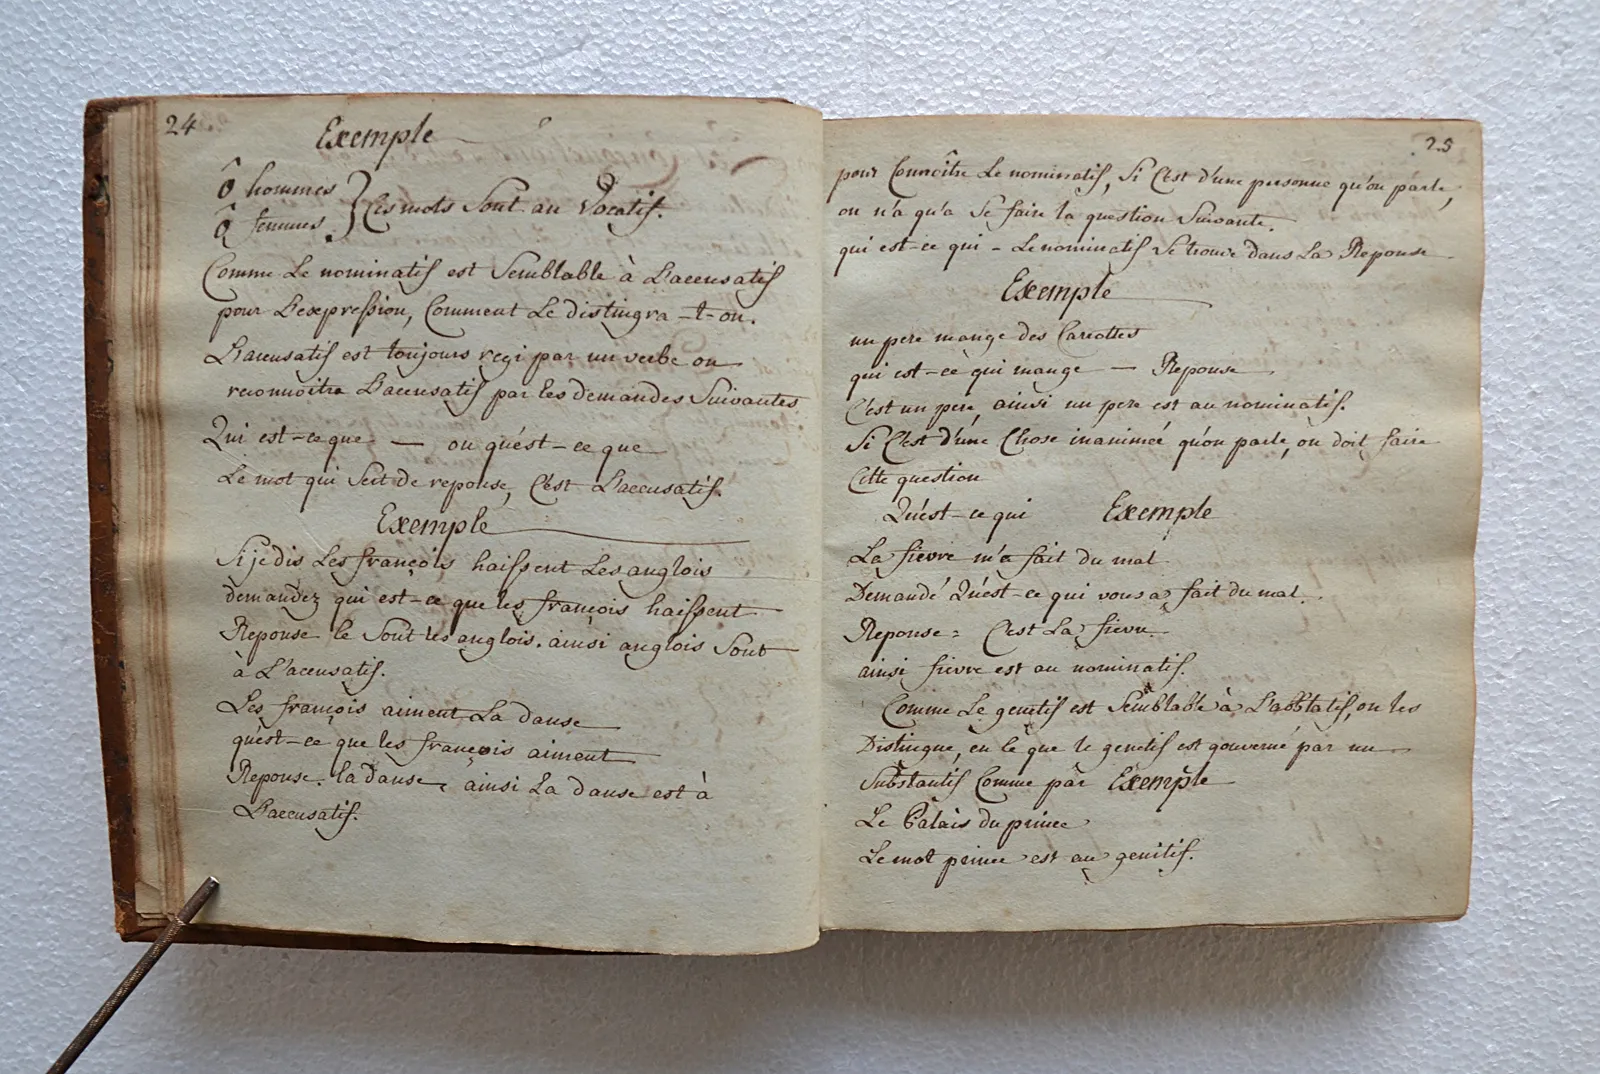 24
Exemple
ô hommes
ô femmes } Ces mots Sont au Vocatif.
Comme Le nominatif est Semblable à L'accusatif
pour L'expression, Comment Le distingra-t-on.
L'accusatif est toujours regi par un verbe on
reconnoitra L'accusatif par les demandes Suivantes
Qui est-ce que — ou qu'est-ce que
Le mot qui Sert de reponse, C'est L'accusatif.
Exemple
Si je dis Les françois haissent Les anglois
demandez qui est-ce que les françois haissent
Reponse le Sont les anglois. ainsi anglois Sont
à L'acensatif.
Les françois aiment La danse
qu'est-ce que les françois aiment
Reponse. la danse, ainsi La danse est à
L'accusatif.
25
pour Connoître Le nominatif, Si C'est d'une personne qu'on parle,
on n'a qu'a Se faire la question Suivante.
qui est-ce qui - Le nominatif Se trouve dans La Reponse
Exemple
un pere mange des Carottes
qui est-ce qui mange — Reponse
C'est un pere, ainsi un pere est au nominatif.
Si C'est d'une Chose inanimée qu'on parle, on doit faire
Cette question
Qu'est-ce qui Exemple
La fievre m'a fait du mal
Demandé Qu'est-ce qui vous a fait du mal.
Reponse = C'est La fievre
ainsi fievre est au nominatif.
Comme Le genitif est Semblable à L'abblatif, on les
Distingue, en ce que le genetif est gouverné par un
Substantif Comme par Exemple
Le Palais du prince
Le mot prince est au genitif.